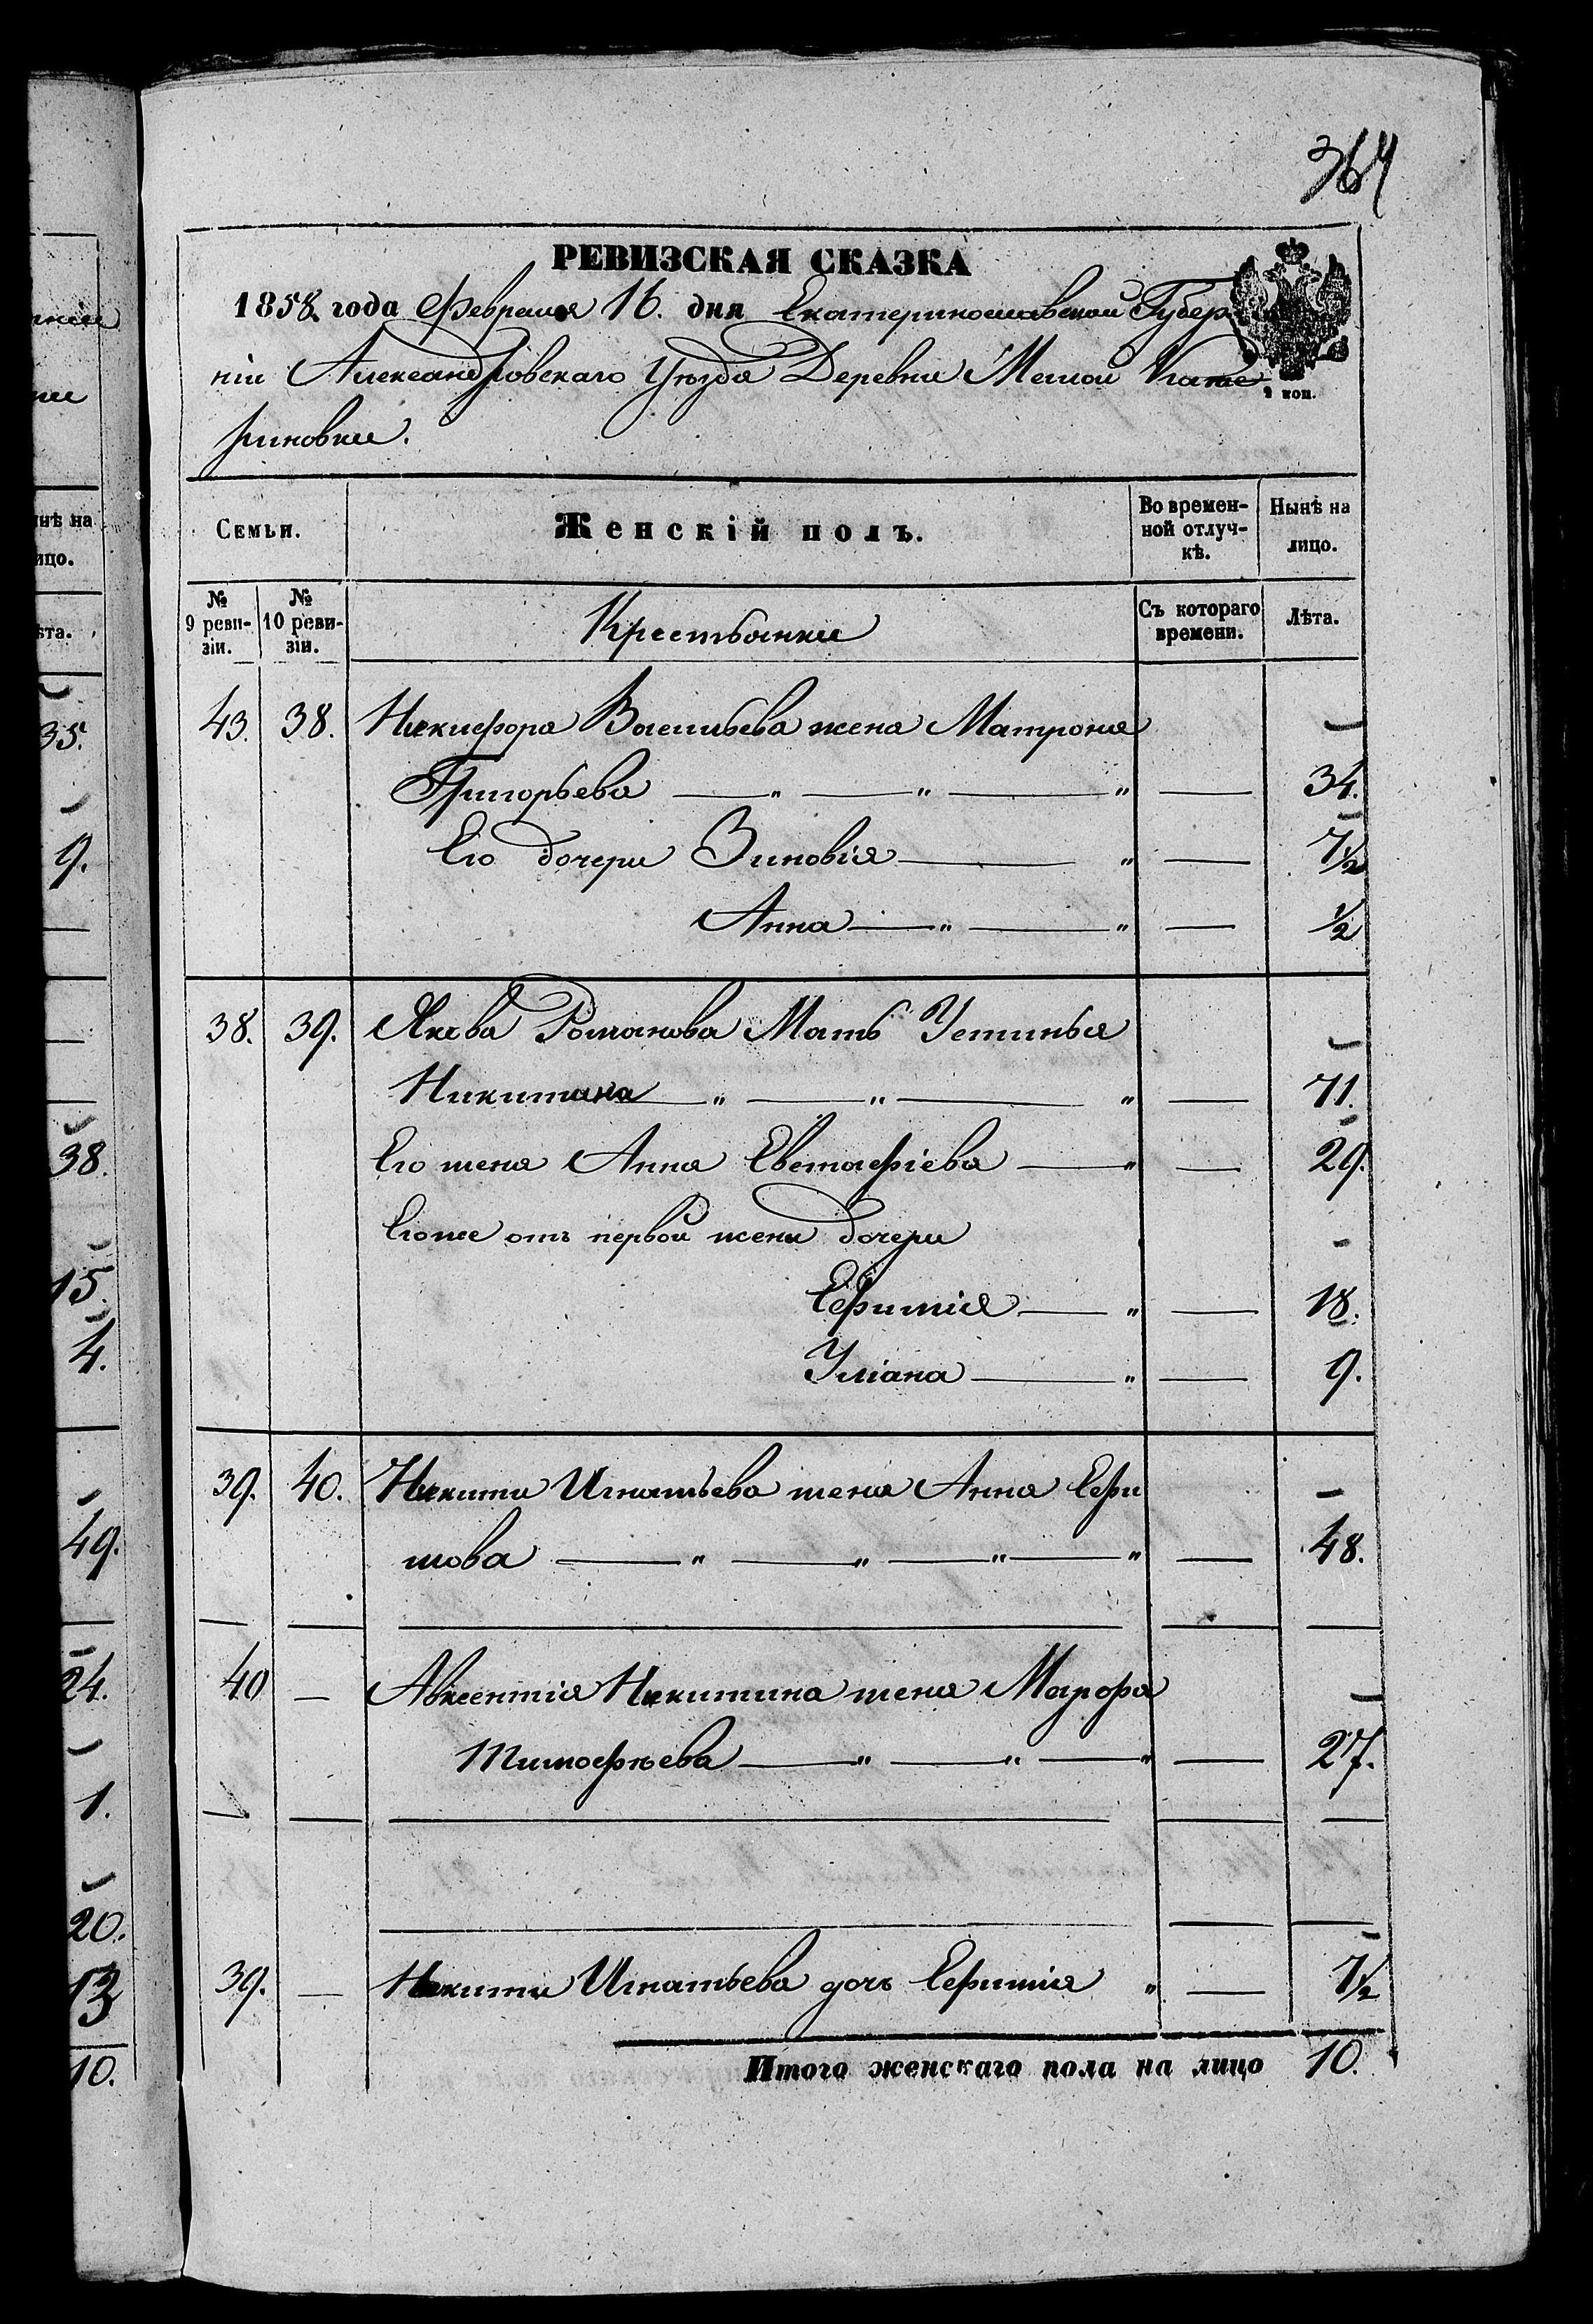 364
РЕВИЗСКАЯ СКАЗКА
1858 года Февраля 16. дня Екатеринославской Губер
ніи Александровскаго Уѣзда Деревни Малой Екате
риновки.
2 коп.
Семьи. Женскій полъ. Во времен-ной отлуч-кѣ. Нынѣ на лицо.
№ 9 реви-зіи. № 10 реви-зіи. Крестьянки Съ котораго времени. Лѣта.
43. 38. Никифора Васильева жена Матрона
Григорьева — „ — „ — „ — 34.
Его дочери Зиновія — „ — 7½
Анна — „ — „ — ½
38. 39. Якова Романова Мать Устинья
Никитина — „ — „ — „ — 71.
Его жена Анна Евстафіева — „ — 29.
Егоже отъ первой жены дочери
Ефимія — „ — 18.
Уліана — „ — 9.
39. 40. Никиты Игнатьева жена Анна Ефи
мова — „ — „ — „ — „ — 48.
40 — Авксентія Никитина жена Марфа
Тимофѣева — „ — „ — „ — 27.
39. — Никиты Игнатьева дочь Ефимія „ — 1½
Итого женскаго пола на лицо 10.
нѣ на
ицо.
ѣта.
35.
9.
38.
15.
4.
49.
24.
1.
20.
13
10.